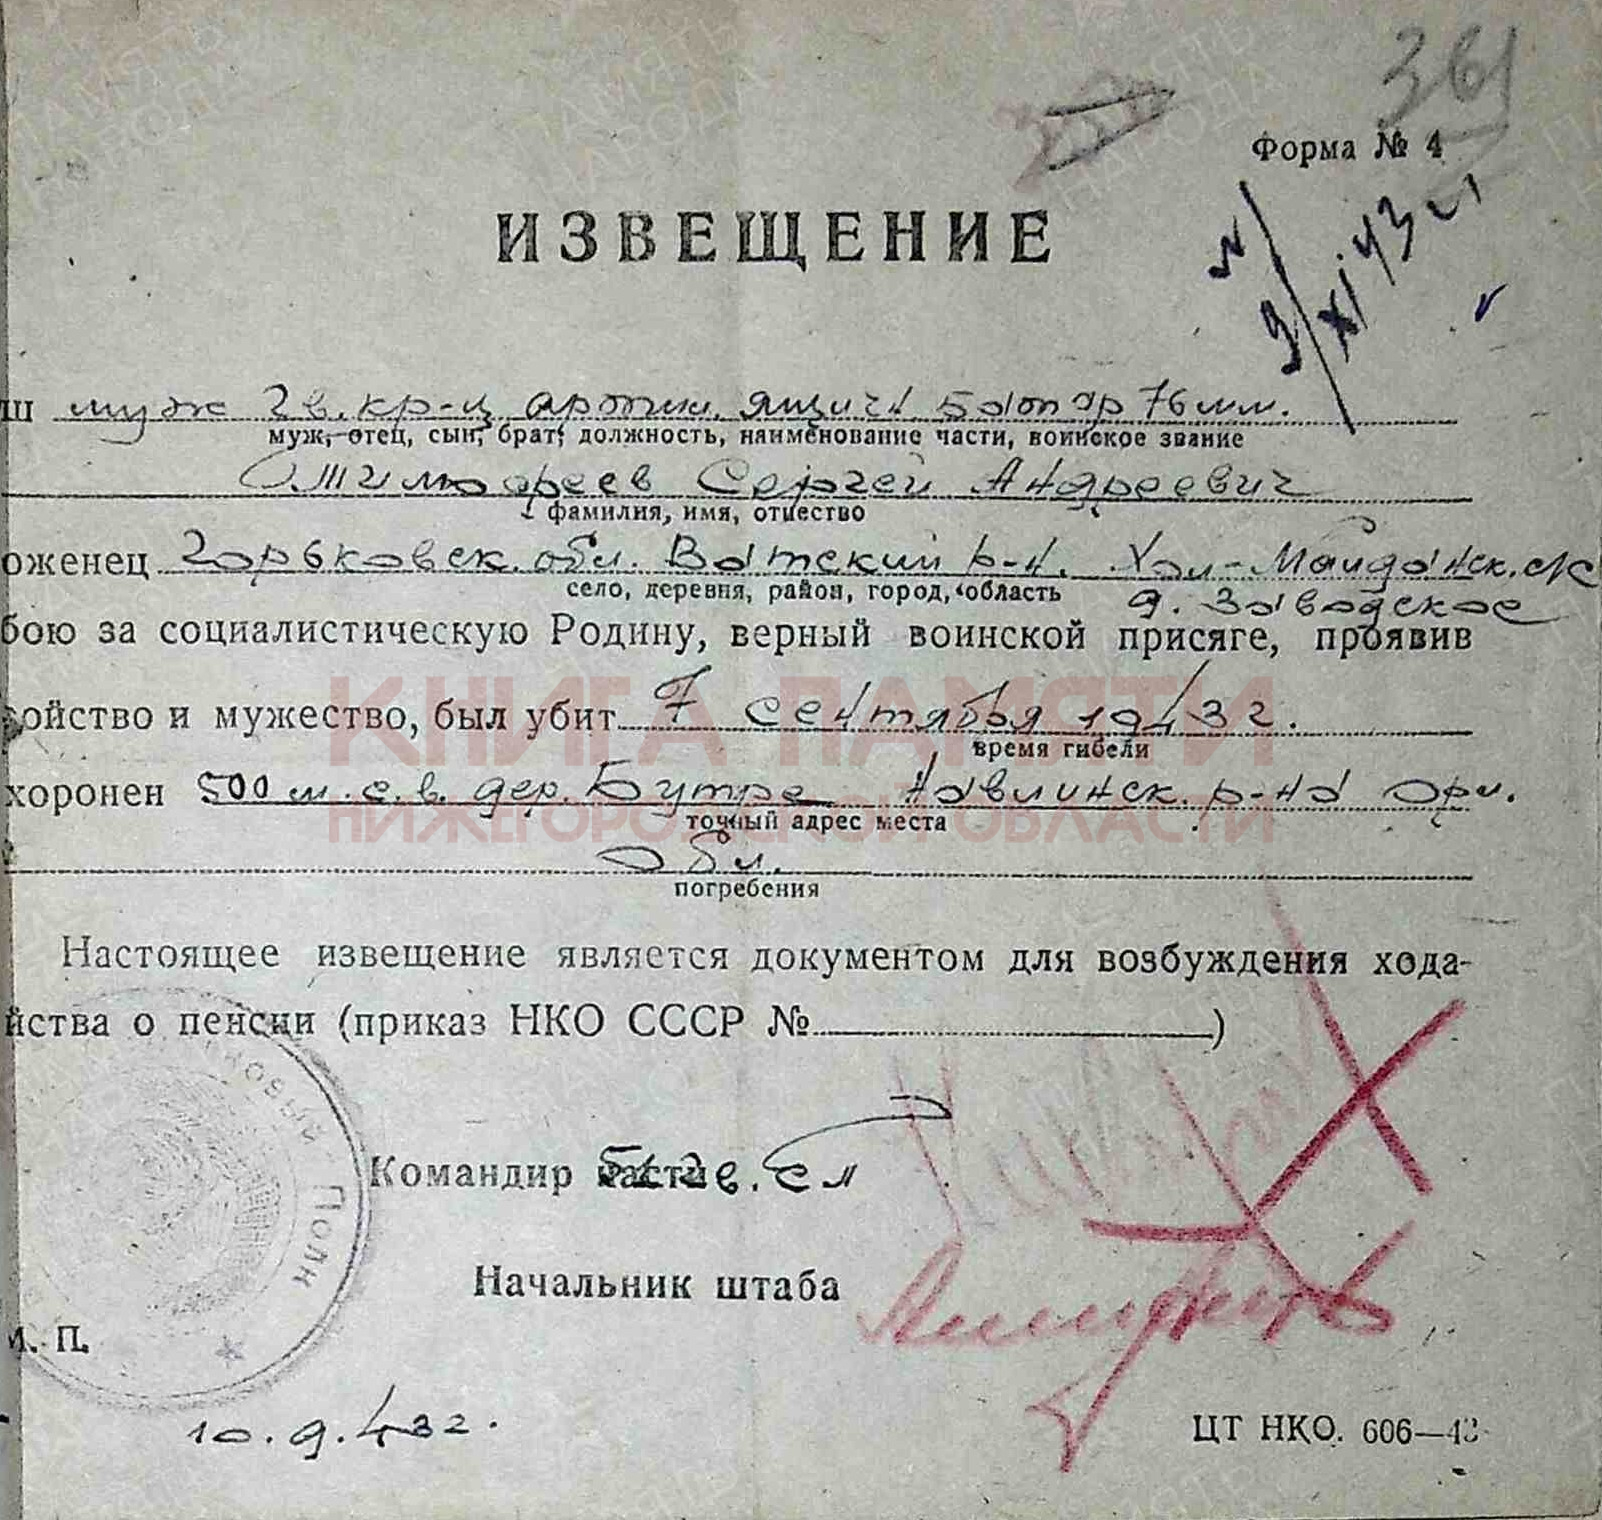 361
Форма № 4
ИЗВЕЩЕНИЕ
9/XI 43
ш муж гв. кр-ц артил. ящичн. батар 76 мм.
муж, отец, сын, брат, должность, наименование части, воинское звание
Сергей Андреевич
фамилия, имя, отчество
оженец Горьковск. обл. Ватский р-н. Хол-Майданск. с/с
село, деревня, район, город, область
д. Заводское
бою за социалистическую Родину, верный воинской присяге, проявив
ройство и мужество, был убит 7 сентября 1943 г.
время гибели
КНИГА ПАМЯТИ
хоронен 500 м. с. в. дер. Бутре Навлинск. р-на Орл.
точный адрес места
НИЖЕГОРОДСКОЙ ОБЛАСТИ
обл.
погребения
Настоящее извещение является документом для возбуждения хода-
йства о пенсии (приказ НКО СССР № )
Командир части
Начальник штаба
Полк
М. П.
10.9.43г.
ЦТ НКО. 606—43